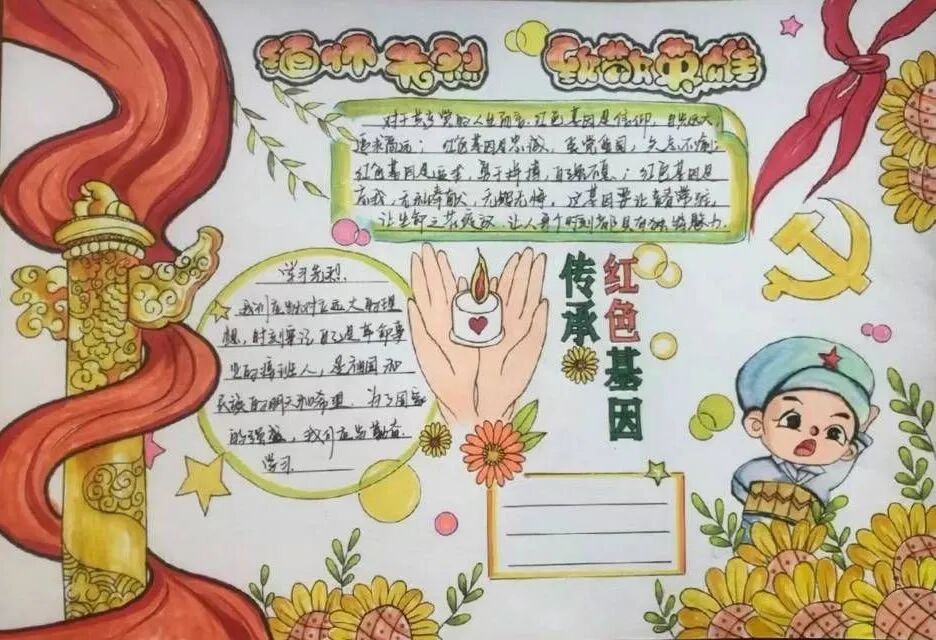 缅怀先烈 致敬英雄
对于共产党的人生而言,红色基因是信仰,自然远大,
追求高远;红色基因是忠诚,爱党爱国,矢志不渝;
红色基因是追求,勇于拼搏,自强不息;红色基因是
忘我,无私奉献,无怨无悔。这基因要让青春带班,
让生命之花绽放,让人每个时刻都具有独特魅力.
传承
红色基因
学习先烈:
我们应树立远大的理
想,时刻牢记自己是革命事
业的接班人,是祖国和
民族的明天和希望。为了国家
的强盛,我们应当勤奋
学习.